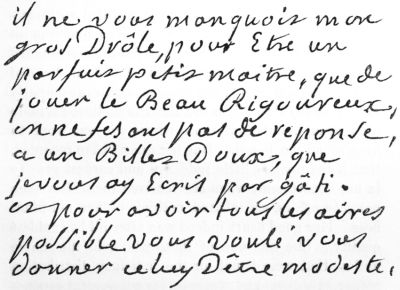 il ne vous manquois mon
gros Drôle, pour Etre un
parfais petis maitre, que de
jouer le Beau Rigoureux,
en ne fesant pas de reponse,
a un Billez Doux, que
je vous ay Ecris par gâti.
et pour avoir tous les aires
possible vous voulé vous
donner celuy D'être modeste,